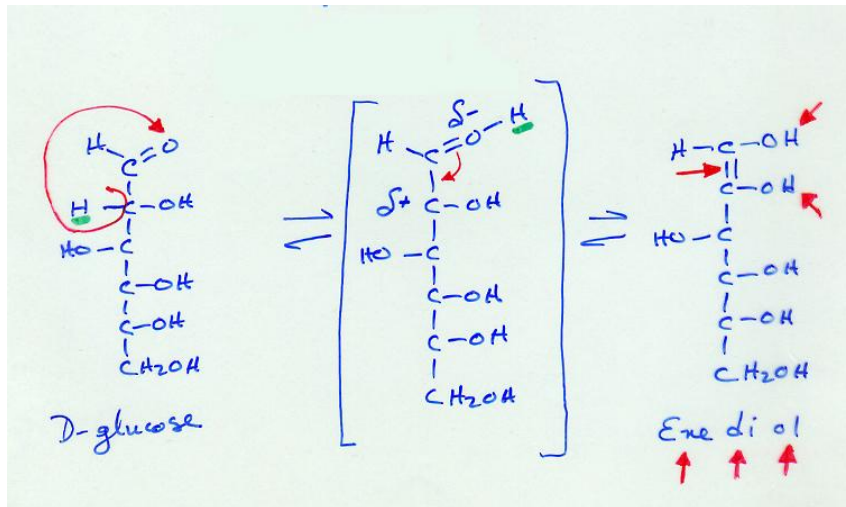 H C=O
H-C-OH
HO-C
C-OH
C-OH
CH2OH
D-glucose
δ-
H C=O-H
δ+ C-OH
HO-C
C-OH
C-OH
CH2OH
H-C-OH
C-OH
HO-C
C-OH
C-OH
CH2OH
Ene di ol